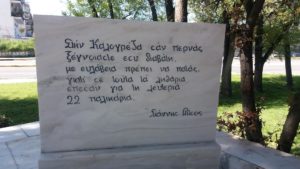 Στην Καλογρέζα εάν περνάς
ξέγνοιαστε εσύ διαβάτη,
με ευλάβεια πρέπει να πατάς,
γιατί σε τούτα τα λιθάρια
έπεσαν για τη λευτεριά
22 παλικάρια.
Γιάννης